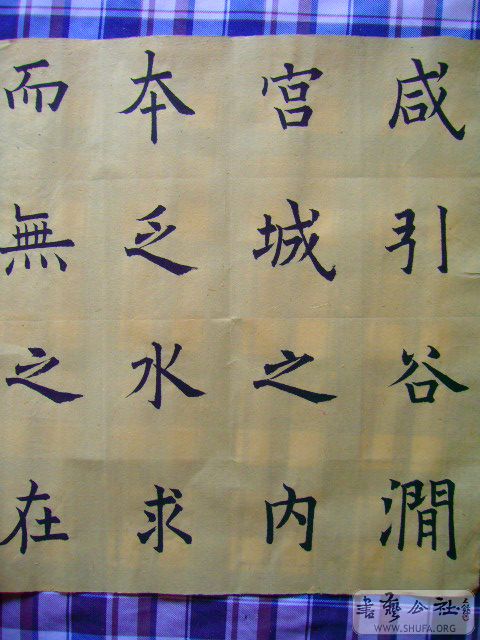 咸引谷澗
宮城之内
本乏水求
而無之在
書藝公社
WWW.SHUFA.ORG